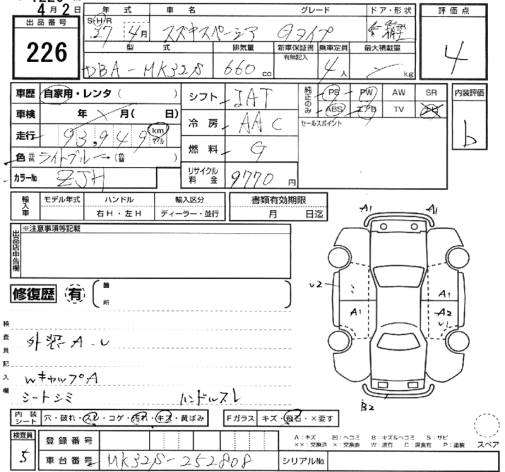 4月2日
出品番号
226
年式 車名 グレード ドア・形状
S・H・R 27年 4月 スズキスペーシア Gタイプ
評価点
4
型式 排気量 新車保証書 有無記入 乗車定員 最大積載量
DBA-MK32S 660cc 4人 kg
車歴 自家用・レンタ( )
車検 年 月 日
走行 93,949 km マイル
色 ライトブルー
カラーNo ZJH
シフト IAT
冷房 AAC
燃料 G
リサイクル料金 9770円
純正のみ PS PW AW SR
ABS エアB TV
セールスポイント
内装評価
b
輸入車 モデル年式 ハンドル 輸入区分
右H・左H ディーラー・並行
書類有効期限
月 日迄
出品店申告欄 ※注意事項等記載
修復歴 有 箇所
検査員記入欄
外装A-U
WキャップA
シートシミ ハンドルスレ
A1 A1
U2 A1 A2
A1 U1
B2
内装シート 穴・破れ・スレ・コゲ・汚れ・キズ・黄ばみ
Fガラス キズ・飛石・X要す
A:キズ B:キズ&ヘコミ S:サビ
XX:交換済 W:波打 C:腐食 P:塗装
スペア
検査員
5
登録番号
車台番号 MK32S-252808
シリアルNo